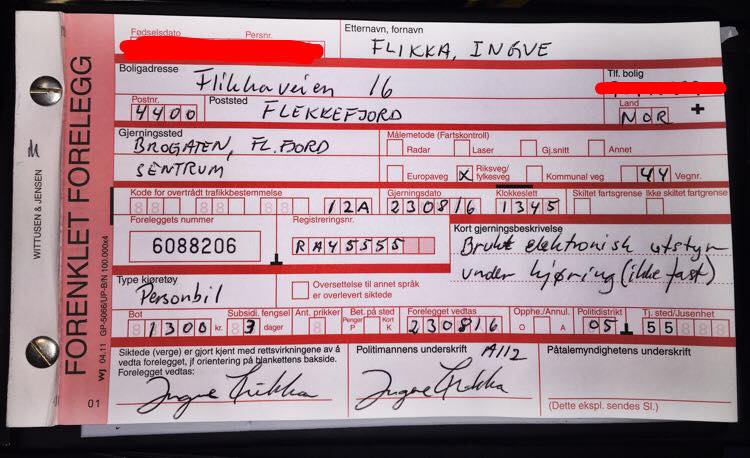 FORENKLET FORELEGG
WITTUSEN & JENSEN
WJ 04.11 GP-5066/UP-B/N 100.000x4
01
Fødselsdato Persnr.
Etternavn, fornavn
FLIKKA, INGVE
Boligadresse
Flikkaveien 16
Tlf. bolig
Postnr. Poststed Land
4400 FLEKKEFJORD NOR
Gjerningssted
BROGATEN, FL.FJORD
SENTRUM
Målemetode (Fartskontroll)
Radar Laser Gj.snitt Annet
Europaveg x Riksveg/fylkesveg Kommunal veg 44 Vegnr.
Kode for overtrådt trafikkbestemmelse Gjerningsdato Klokkeslett Skiltet fartsgrense Ikke skiltet fartsgrense
12A 230816 1345
Foreleggets nummer Registreringsnr. Kort gjerningsbeskrivelse
6088206 RA45555
Brukt elektronisk utstyr
under kjøring (ikke fast)
Type kjøretøy
Personbil
Oversettelse til annet språk
er overlevert siktede
Bot Subsidi. fengsel Ant. prikker Bet. på sted Forelegget vedtas Opphe./Annul. Politidistrikt Tj. sted/Jusenhet
1300 kr. 3 dager Penger P Kort K 230816 O A 05 55
Siktede (verge) er gjort kjent med rettsvirkningene av å
vedta forelegget, jf orientering på blankettens bakside.
Forelegget vedtas:
Ingve Flikka
Politimannens underskrift A112
Ingve Flikka
Påtalemyndighetens underskrift
(Dette ekspl. sendes SI.)